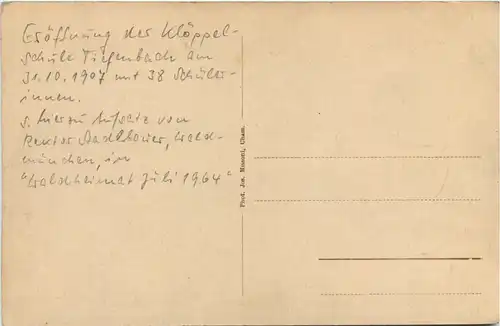 Eröffnung der Klöppel-
schule Tiefenbach am
31.10.1907 mit 38 Schüler-
innen.
s. hierzu Aufsatz von
Rektor Stadlbauer, Wald-
münchen, in
"Waldheimat Juli 1964"
Phot. Jos. Mussotl, Cham.